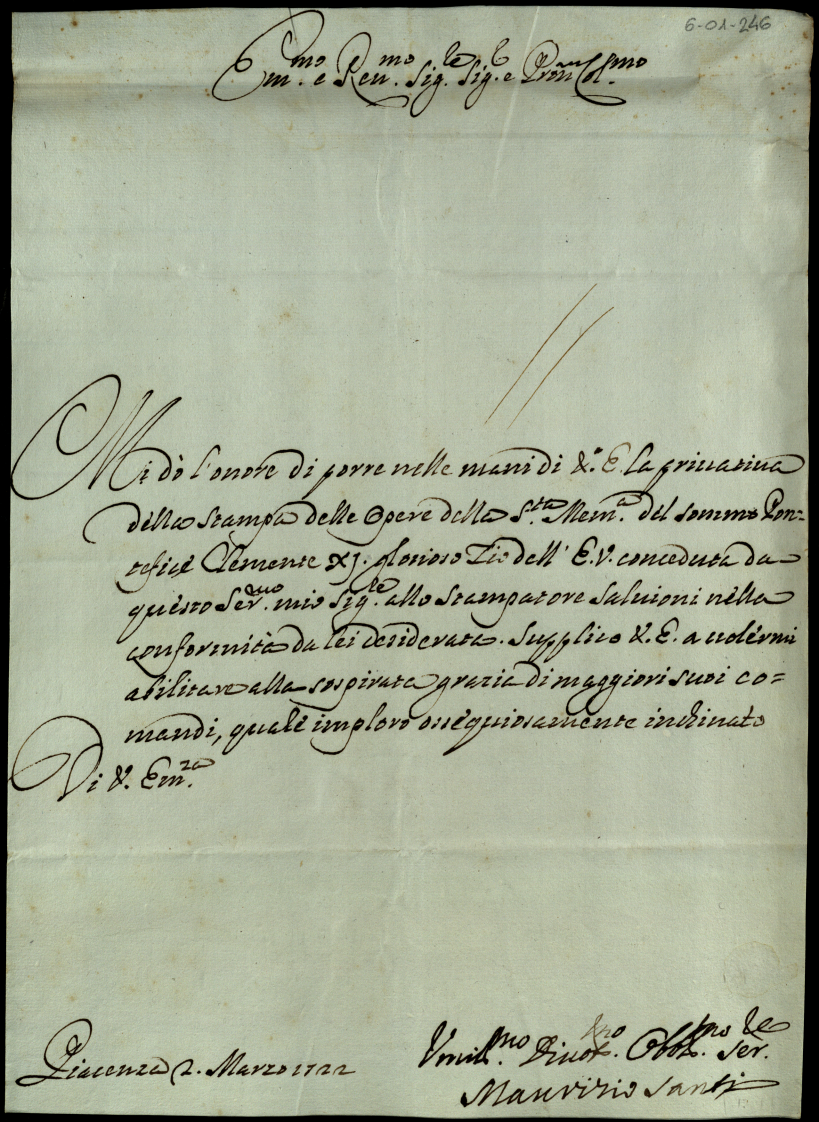 6-01-246
Em.mo e Reu.mo Sig.le Sig.e Pron Col.mo
Mi dò l'onore di porre nelle mani di V.a E. la priuatiua
della stampa delle Opere della S.ta Mem.a del sommo Pon=
tefice Clemente XJ. glorioso Zio dell' E.V. conceduta da
questo Ser.mo mio Sig.le allo stampatore Saluioni nella
conformità da lei desiderata. Supplico V.E. a uolermi
abilitare alla sospirata grazia di maggiori suoi co=
mandi, quale imploro ossequiosamente inchinato
Di V. Em.za
Piacenza 2. Marzo 1722
Vmil.mo Diuot.mo Obbl.mo Ser.le
Maurizio Santi